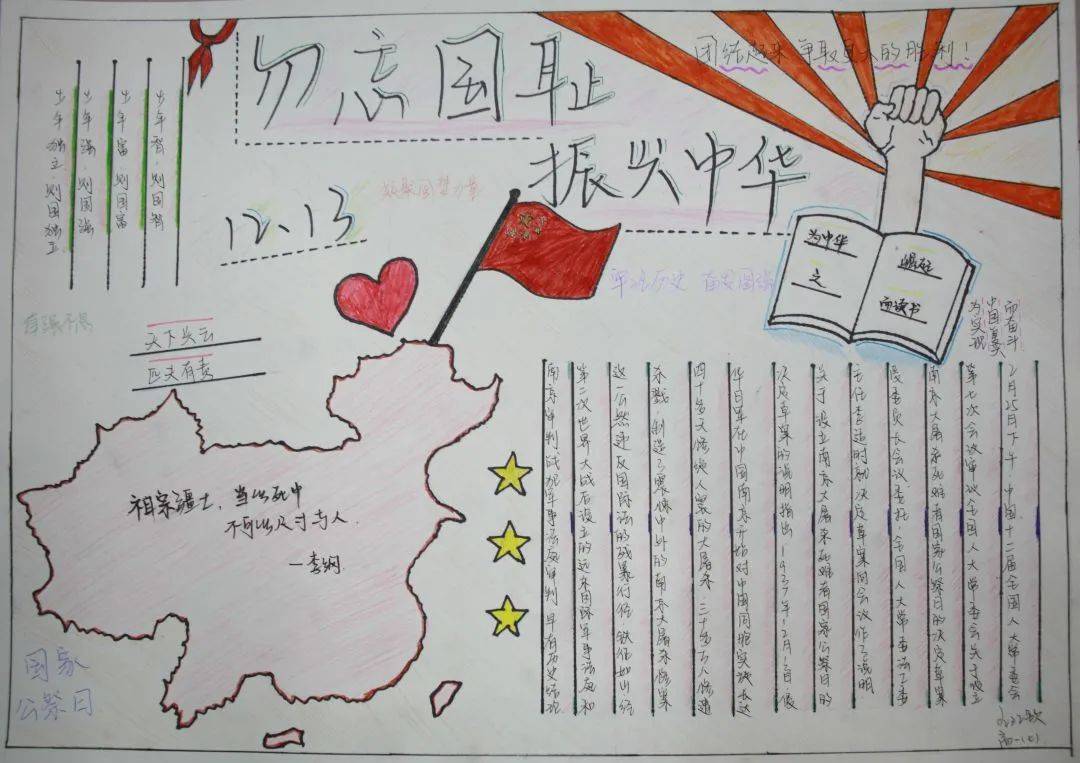 勿忘国耻
振兴中华
12、13
团结起来 争取更大的胜利!
少年智,则国智
少年富,则国富
少年强,则国强
少年独立,则国独立
凝聚国梦力量
牢记历史 奋发图强
自强不息
天下兴亡
匹夫有责
为中华
之
崛起
而读书
为实现
中国梦
而奋斗
祖宗疆土,当以死守
不可以尺寸与人。
—李纲
国家
公祭日
2月25日下午,中国十二届全国人大常委会
第七次会议审议全国人大常委会关于设立
南京大屠杀死难者国家公祭日的决定草案
受委员长会议委托,全国人大常委法工委
主任李适时就决定草案向会议作了说明
关于设立南京大屠杀死难者国家公祭日的
决定草案的说明指出,1937年12月13日,侵
华日军在中国南京开始对中国同胞实施长达
四十多天惨绝人寰的大屠杀,三十多万人惨遭
杀戮,制造了震惊中外的南京大屠杀惨案
这一公然违反国际法的残暴行径,铁证如山,经
第二次世界大战后设立的远东国际军事法庭和
南京审判战犯军事法庭审判,早有历史结论